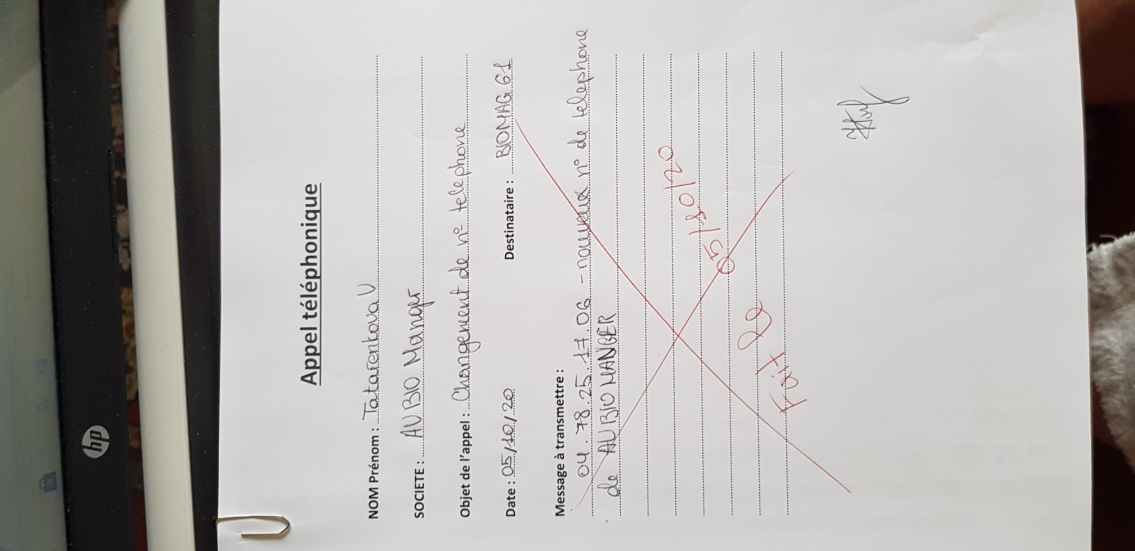 hp
Appel téléphonique
NOM Prénom : Tatarenkova V
SOCIETE : AU BIO Manger
Objet de l'appel : Changement de n° telephone
Date : 05/10/20 Destinataire : BIOMAG 61
Message à transmettre :
04.78.25.17.06 - nouveau n° de telephone
de AU BIO MANGER
05/10/20
Fait le